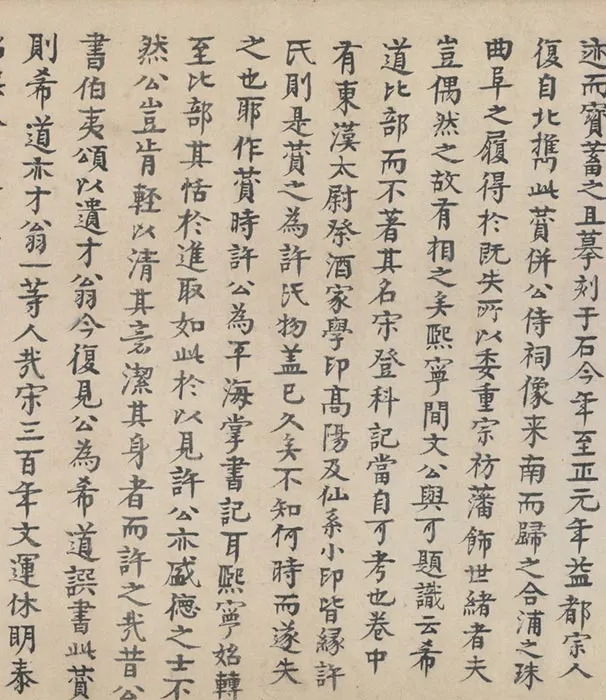 迹而寳蓄之且摹刻于石今年至正元年益都宗人
復自北攜此賛併公侍祠像来南而歸之合浦之珠
曲阜之履得於既失所以委重宗祊藩飾世緒者夫
豈偶然之故有相之矣熈寧間文公與可題識云希
道比部而不著其名宋登科記當自可考也卷中
有東漢太尉祭酒家學印髙陽及仙系小印皆縁許
氏則是賛之為許氏物盖已久矣不知何時而遂失
之也耶作賛時許公為平海掌書記耳熈寧始轉
至比部其恬於進取如此於以見許公亦盛徳之士不
然公豈肯輕以清其意潔其身者而許之㢤昔公
書伯夷頌以遺才翁今復見公為希道譔書此賛
則希道亦才翁一等人㢤宋三百年文運休明泰